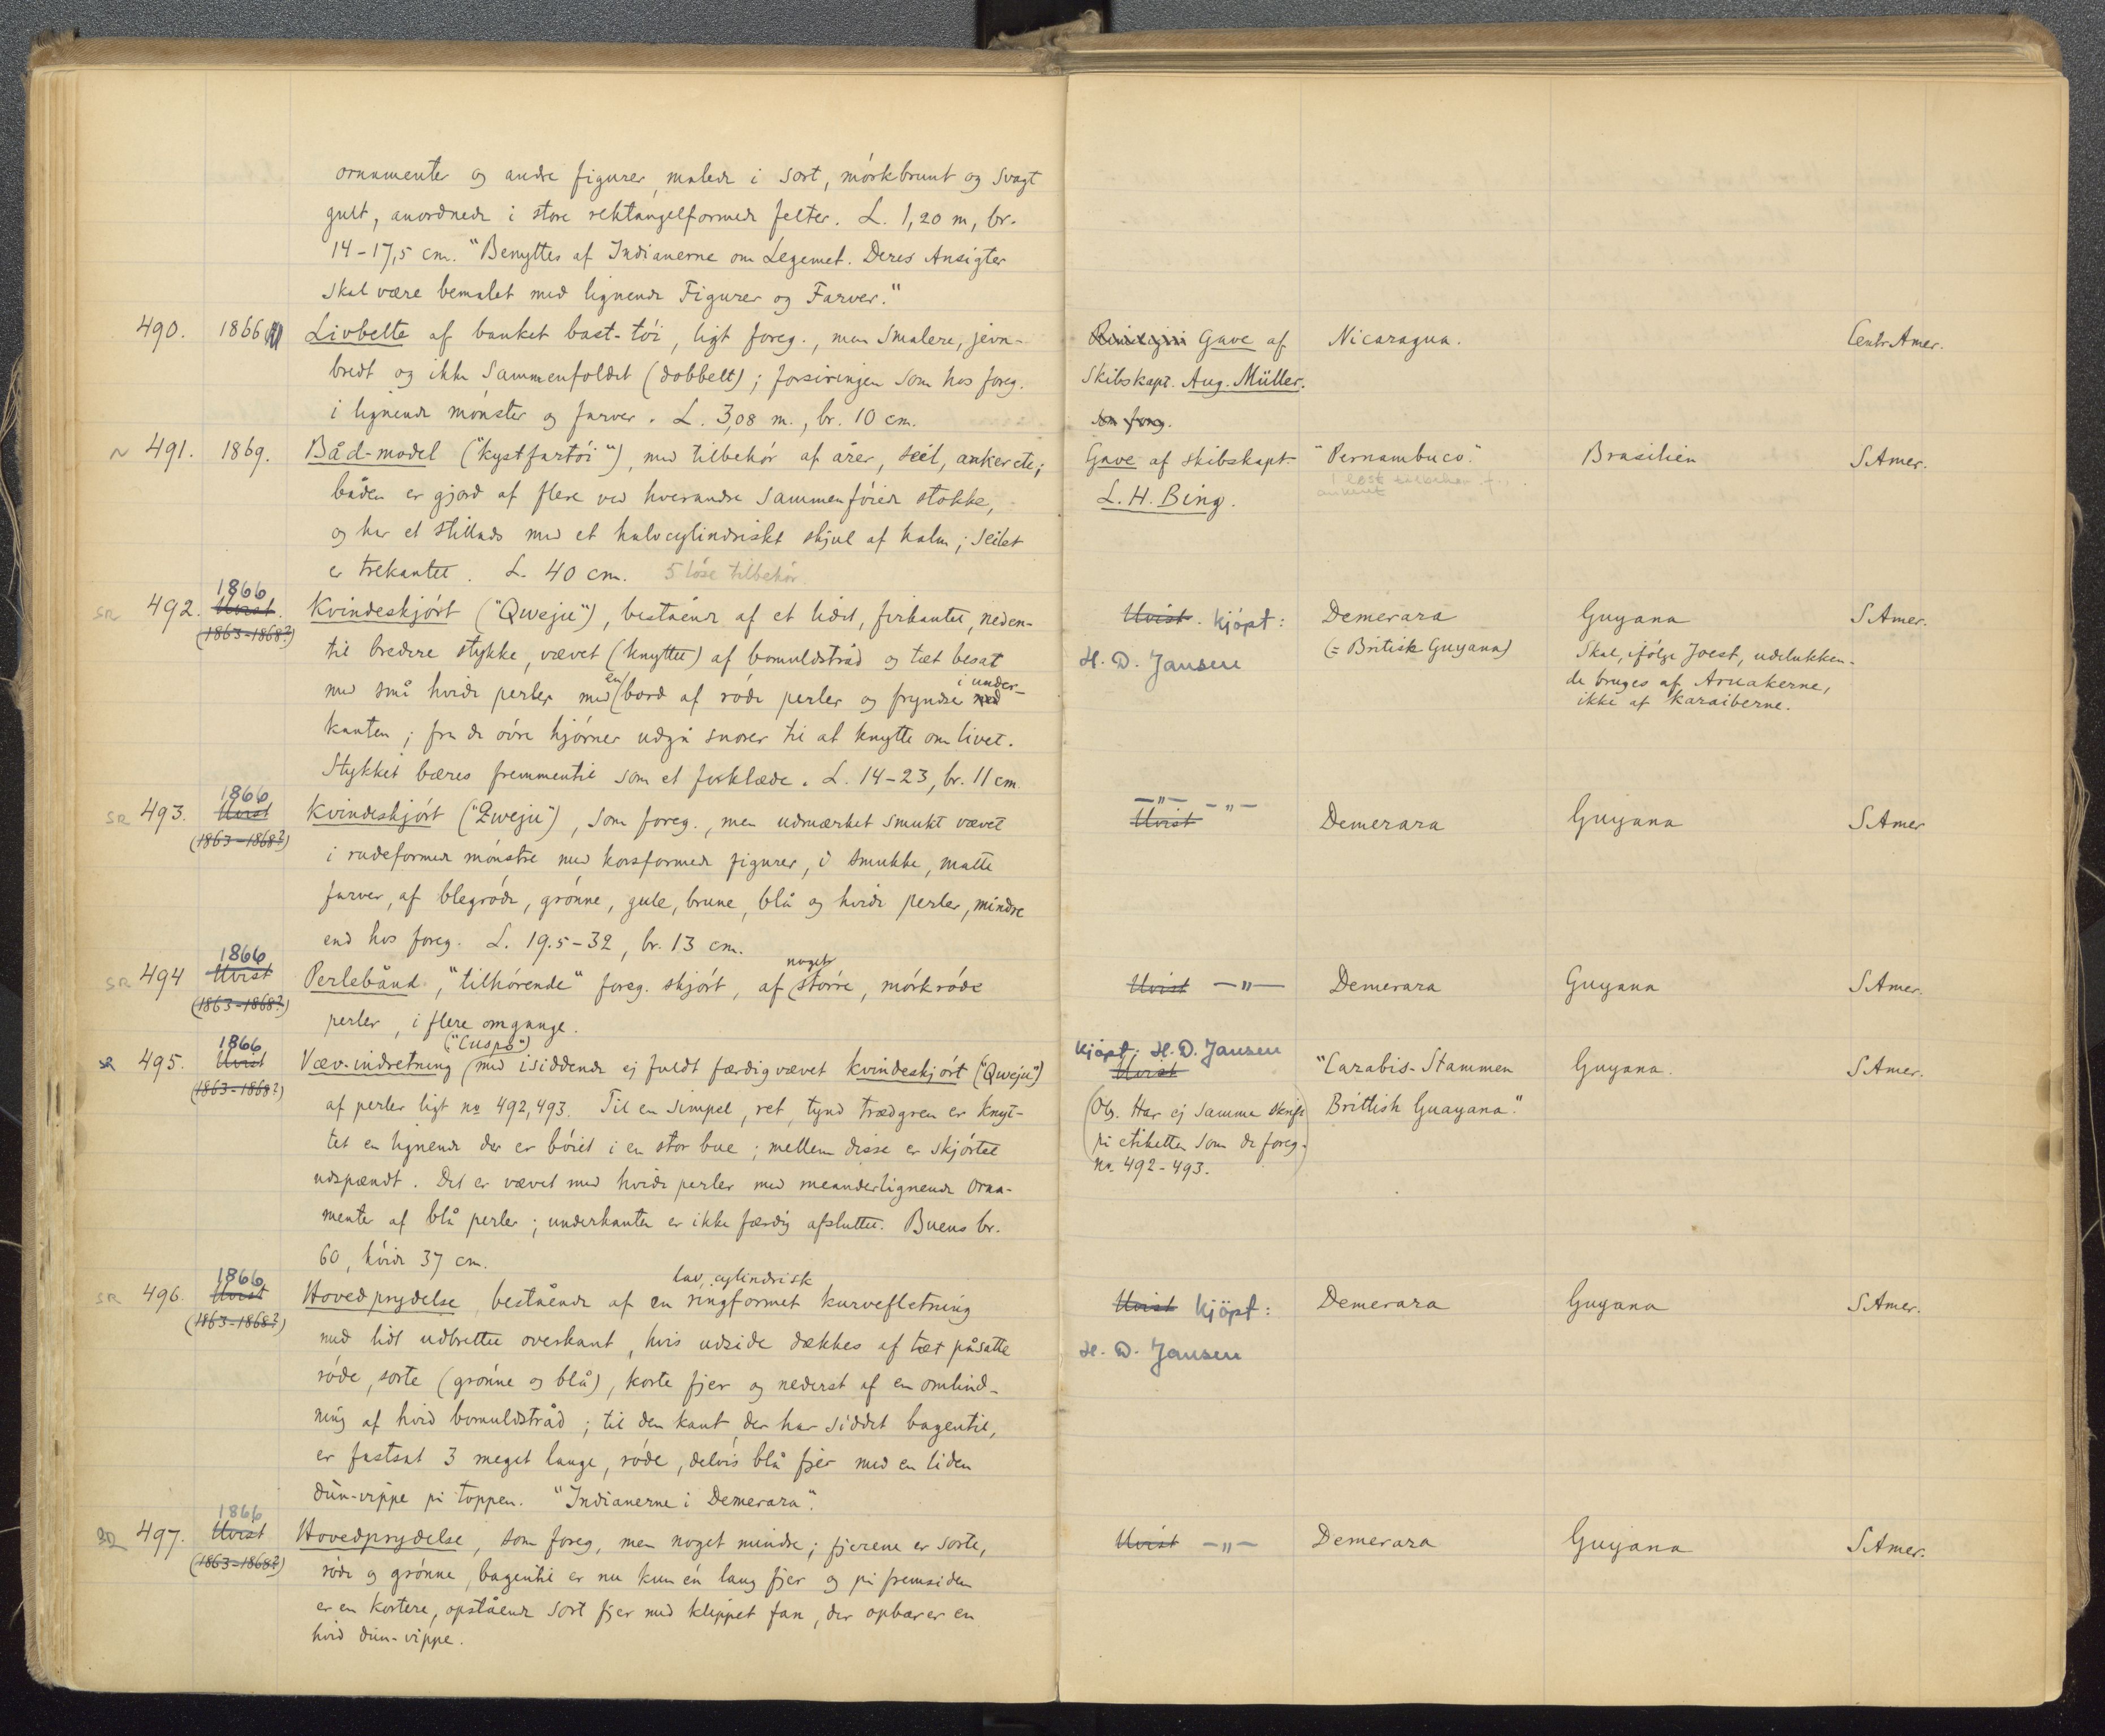 ornamenter og andre figurer, malede i sort, mörkbrunt og svagt
gult, anordnede i store rektangelformede felter. L. 1,20 m, br.
14-17,5 cm. "Benyttes af Indianerne om Legemet. Deres Ansigter
skal være bemalet med lignende Figurer og Farver."
490. 1866 Livbelte af banket bast-töi, ligt foreg., men smalere, jevn- Gave af Nicaragua. CentrAmer.
bredt og ikke sammenfoldet (dobbelt); forsiringen som hos foreg. Skibskapt. Aug. Müller.
i lignende mönster og farver. L. 3,08 m., br. 10 cm. som foreg.
~ 491. 1869. Båd-model ("kystfartöi"), med tilbehör af årer, seil, anker etc; Gave af skibskapt. "Pernambuco." Brasilien SAmer.
båden er gjord af flere ved hverandre sammenföiede stokke, L. H. Bing. 1 löst tilbehör
og har et stillads med et halvcylindriskt skjul af halm; seilet
er trekantet. L. 40 cm. 5 löse tilbehör
1866
SR 492. Uvist. Kvindeskjört ("Qweju"), bestående af et lidet, firkantet, neden- Uvist. kjöpt: Demerara Guyana SAmer.
(1863-1868?) til bredere stykke, vævet (knyttet) af bomuldstråd og tæt besat H. D. Jansen (= British Guyana) Skal, ifölge Joest, udelukken-
med små hvide perler med en bord af röde perler og fryndse ned i under- de bruges af Aruakerne,
kanten; fra de övre hjörner udgå snorer til at knytte om livet. ikke af Karaiberne.
Stykket bæres fremmentil som et forklæde. L. 14-23, br. 11 cm.
1866
SR 493. Uvist Kvindeskjört ("Qweju"), som foreg., men udmærket smukt vævet -"- -"- Uvist Demerara Guyana SAmer
(1863-1868?) i rudeformede mönstre med korsformede figurer, i smukke, matte
farver, af blegröde, grönne, gule, brune, blå og hvide perler, mindre
end hos foreg. L. 19.5-32, br. 13 cm.
1866
SR 494 Uvist Perlebånd, "tilhörende" foreg. skjört, af noget större, mörkröde Uvist -"- Demerara Guyana SAmer.
(1863-1868?) perler, i flere omgange.
1866 ("Cuspo")
SR 495. Uvist Væv-indretning med isiddende ej fuldt færdigvævet kvindeskjört ("Qweju") kjöpt: H. D. Jansen Uvist "Carabis-Stammen Guyana. SAmer.
(1863-1868?) af perler ligt no 492, 493. Til en simpel, ret, tynd trædgren er knyt- (Obs. Har ej samme skrift Brittish Guayana."
tet en lignende der er böiet i en stor bue; mellem disse er skjörtet på etiketten som de foreg.
udspændt. Det er vævet med hvide perler med meanderlignende orna- no. 492-493.)
menter af blå perler; underkanten er ikke færdig afsluttet. Buens br.
60, höide 37 cm.
1866 lav, cylindrisk
SR 496. Uvist Hovedprydelse bestående af en ringformet kurvefletning Uvist kjöpt: Demerara Guyana SAmer.
(1863-1868?) med lidt udbrettet overkant, hvis udside dækkes af tæt påsatte H. D. Jansen
röde, sorte (grönne og blå), korte fjer og nederst af en omvind-
ning af hvid bomuldstråd; til den kant, der har siddet bagentil,
er fastsat 3 meget lange, röde, delvis blå fjer med en liden
dun-vippe på toppen. "Indianerne i Demerara".
1866
SR 497. Uvist Hovedprydelse, som foreg, men noget mindre; fjerene er sorte, Uvist -"- Demerara Guyana SAmer.
(1863-1868?) röde og grönne, bagentil er nu kun én lang fjer og på fremsiden
er en kortere, opstående sort fjer med klippet fan, der opbærer en
hvid dun-vippe.